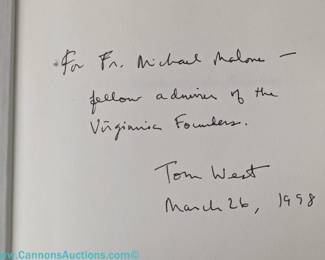 For Fr. Michael Malone —
fellow admirer of the
Virginia Founders.
Tom West
March 26, 1998
www.CannonsAuctions.com©